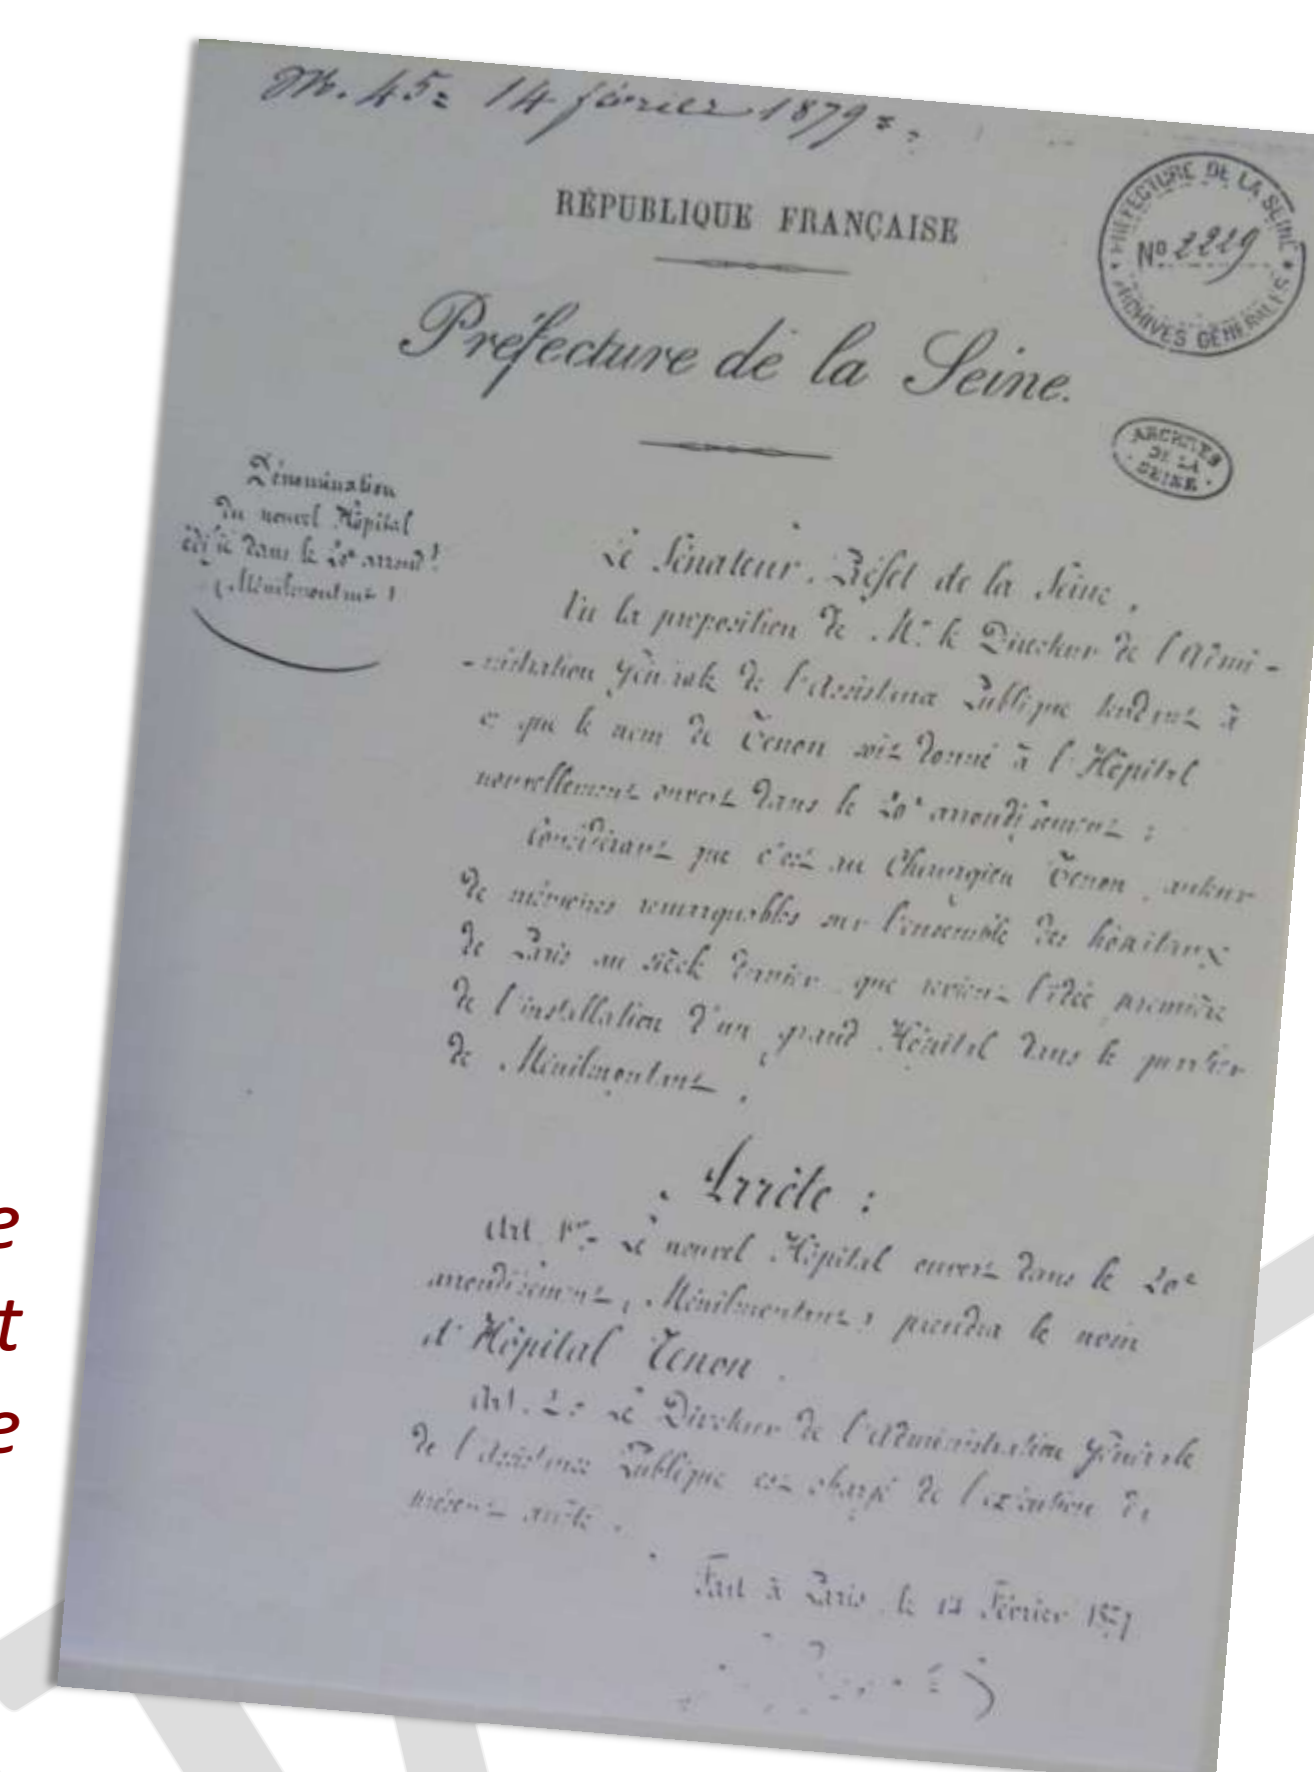 M. 45= 14 février 1879=.
RÉPUBLIQUE FRANÇAISE
PRÉFECTURE DE LA SEINE
Nº 2229
ARCHIVES GÉNÉRALES
Préfecture de la Seine.
ARCHIVES
DE LA
SEINE
Dénomination
du nouvel Hôpital
édifié dans le 20e arrond!
(Ménilmontant)
Le Sénateur, Préfet de la Seine,
Vu la proposition de Mr. le Directeur de l'Admi-
-nistration Générale de l'Assistance Publique tendant à
ce que le nom de Tenon soit donné à l'Hôpital
nouvellement ouvert dans le 20e arrondissement ;
Considérant que c'est au Chirurgien Tenon, auteur
de mémoires remarquables sur l'ensemble des hôpitaux
de Paris au siècle dernier que revient l'idée première
de l'installation d'un grand Hôpital dans le quartier
de Ménilmontant,
Arrête :
Art. 1er- Le nouvel Hôpital ouvert dans le 20e
arrondissement, (Ménilmontant) prendra le nom
d'Hôpital Tenon.
Art. 2= Le Directeur de l'Administration Générale
de l'Assistance Publique est chargé de l'exécution du
présent arrêté.
Fait à Paris, le 14 Février 1879
e
t
e